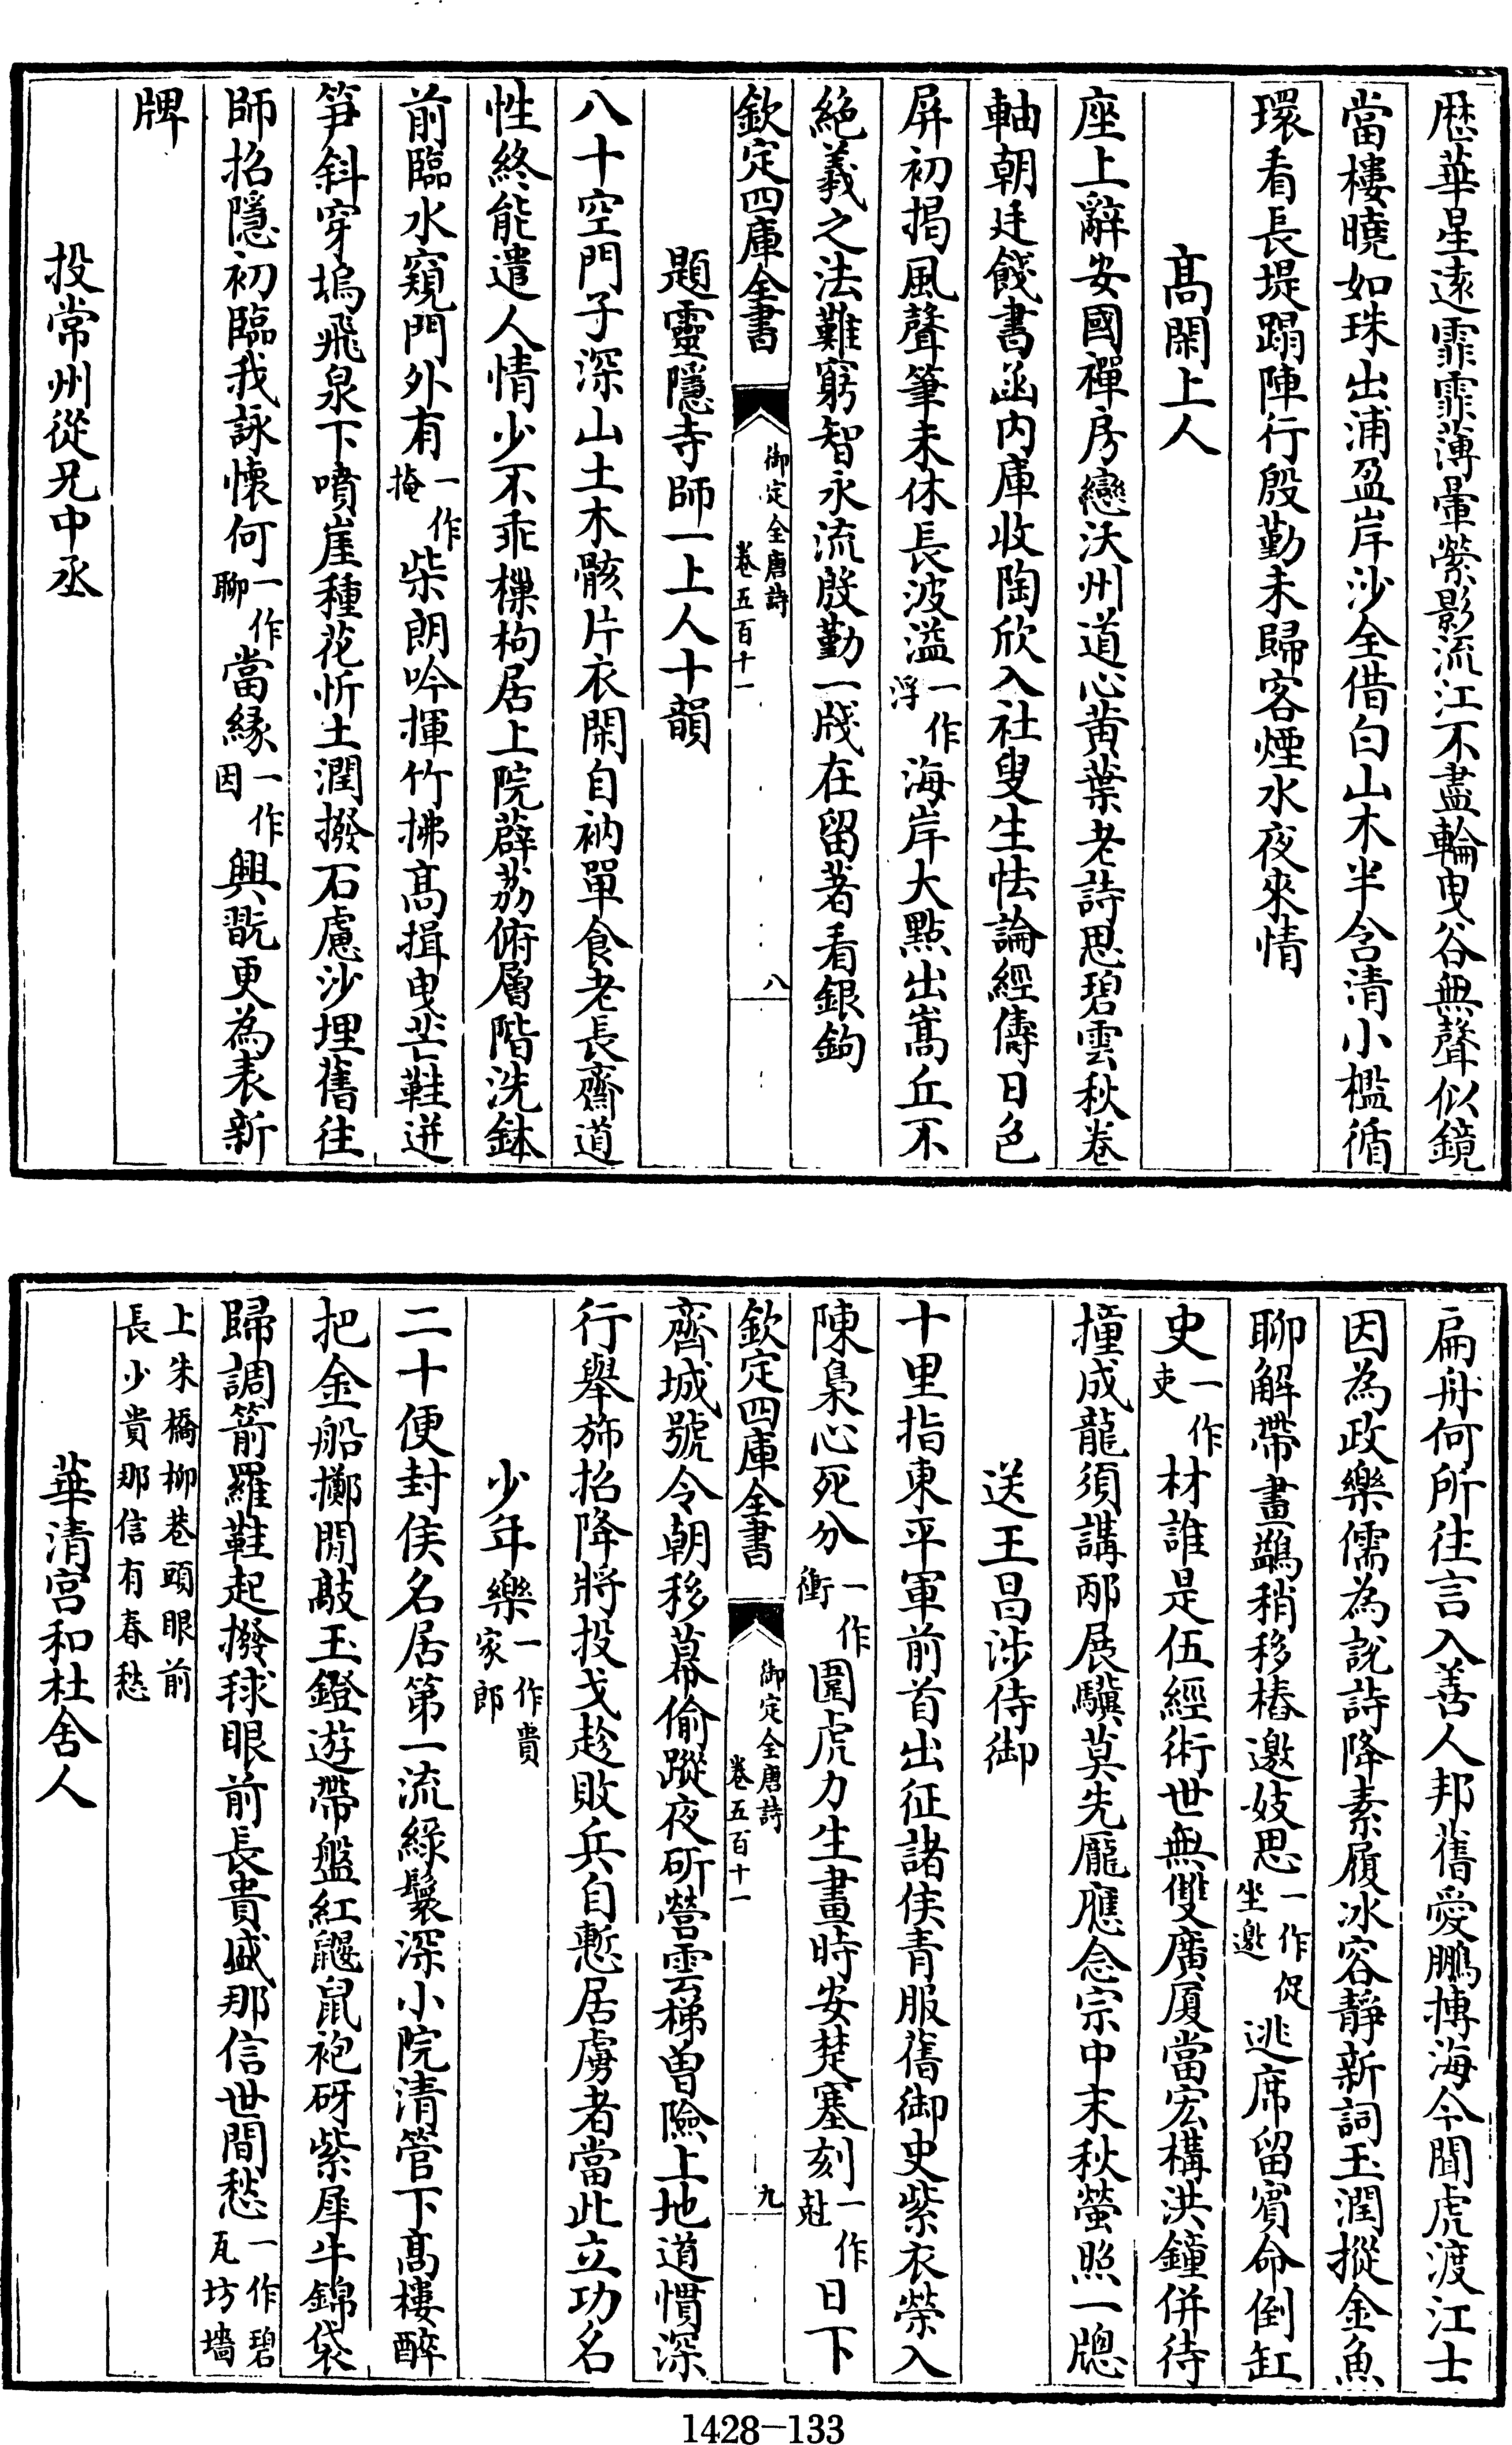 厯華星遠霏霏薄暈縈影流江不盡輪曳谷無聲似鏡
當樓曉如珠出浦盈岸沙全借白山木半含清小檻循
環看長堤蹋陣行殷勤未歸客煙水夜來情
高閑上人
座上辭安國禪房戀沃州道心黃葉老詩思碧雲秋卷
軸朝廷餞書函内庫收陶欣入社叟生怯論經儔日色
屏初揭風聲筆未休長波溢一作浮海岸大點出嵩丘不
絕羲之法難窮智永流殷勤一牋在留著看銀鉤
欽定四庫全書 御定全唐詩 卷五百十一 八
題靈隱寺師一上人十韻
八十空門子深山土木骸片衣閑自衲單食老長齋道
性終能遣人情少不乖樔枸居上院薜荔俯層階洗鉢
前臨水窺門外有一作掩柴朗吟揮竹拂高揖曳芒鞋迸
笋斜穿塢飛泉下噴崖種花忻土潤撥石慮沙埋舊往
師招隱初臨我詠懷何一作聊當緣一作因興翫更為表新
牌
投常州從兄中丞
扁舟何所往言入善人邦舊愛鵬搏海今聞虎渡江士
因為政樂儒為說詩降素履冰容靜新詞玉潤摐金魚
聊解帶畫鷁稍移樁邀妓思一作促坐邀逃席留賓命倒缸
史一作吏材誰是伍經術世無雙廣廈當宏構洪鐘併待
撞成龍須講邴展驥莫先龐應念宗中末秋螢照一牕
送王昌涉侍御
十里指東平軍前首出征諸侯青服舊御史紫衣榮入
陳梟心死分一作衝圍虎力生畫時安楚塞刻一作尅日下
欽定四庫全書 御定全唐詩 卷五百十一 九
齊城號令朝移幕偷蹤夜斫營雲梯曾險上地道慣深
行舉斾招降將投戈趁敗兵自慙居虜者當此立功名
少年樂一作貴家郎
二十便封侯名居第一流綠鬟深小院清管下高樓醉
把金船擲閒敲玉鐙遊帶盤紅鼴鼠袍砑紫犀牛錦袋
歸調箭羅鞋起撥毬眼前長貴盛那信世間愁一作碧瓦坊墻
上朱橋柳巷頭眼前長少貴那信有春愁
華清宮和杜舍人
1428-133